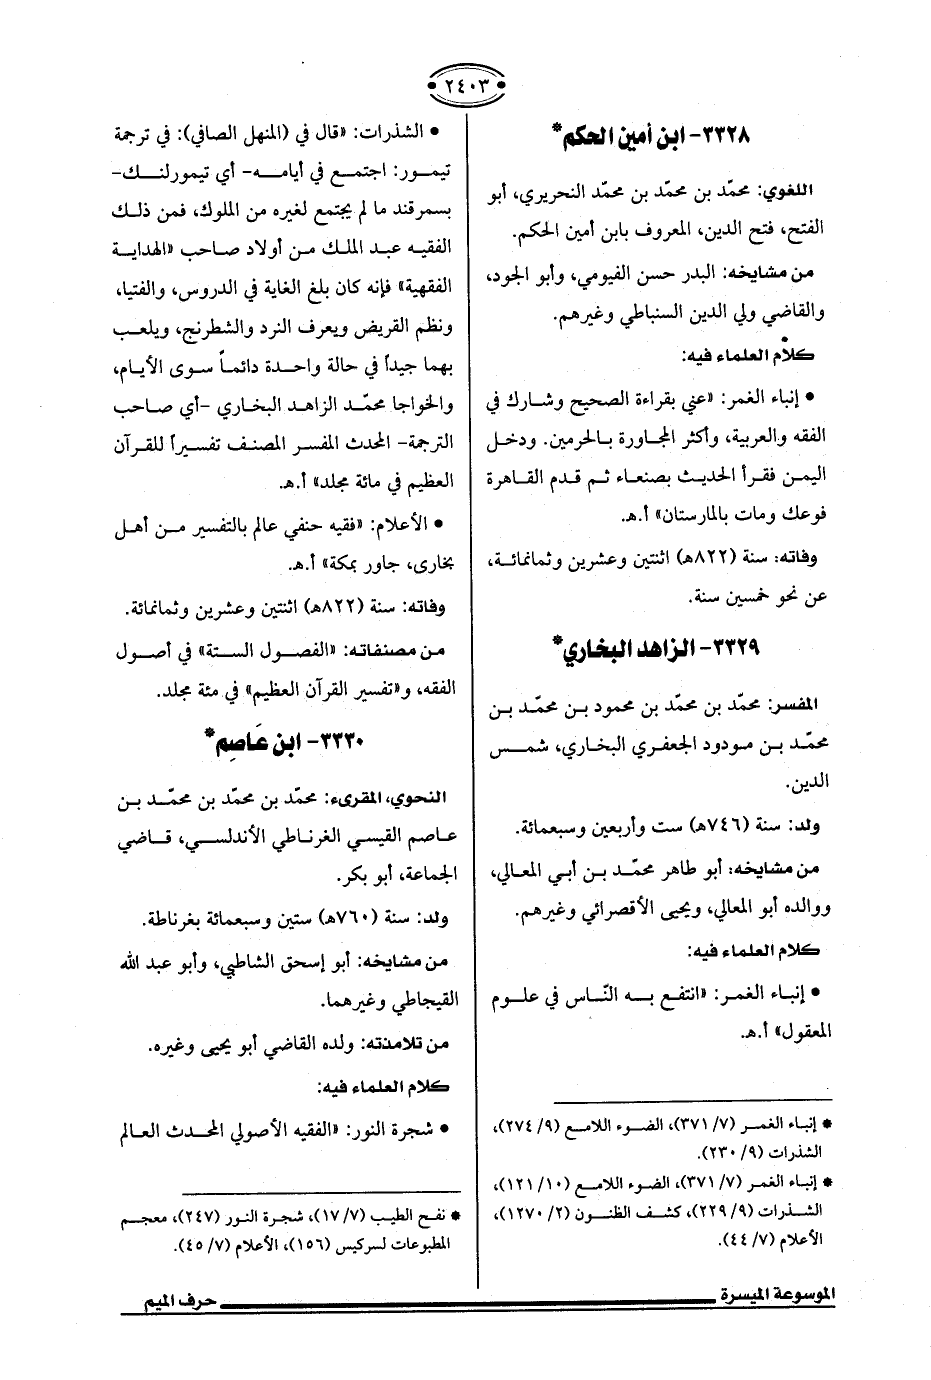 ٢٤٠٣
٣٣٢٨- ابن أمين الحكم*
اللغوي: محمّد بن محمّد بن محمّد النحريري، أبو
الفتح، فتح الدين، المعروف بابن أمين الحكم.
من مشايخه: البدر حسن الفيومي، وأبو الجود،
والقاضي ولي الدين السنباطي وغيرهم.
كلام العلماء فيه:
• إنباء الغمر: «عني بقراءة الصحيح وشارك في
الفقه والعربية، وأكثر المجاورة بالحرمين. ودخل
اليمن فقرأ الحديث بصنعاء ثم قدم القاهرة
فوعك ومات بالمارستان» أ.هـ.
وفاته: سنة (٨٢٢هـ) اثنتين وعشرين وثمانمائة،
عن نحو خمسين سنة.
٣٣٢٩- الزاهد البخاري*
المفسر: محمّد بن محمّد بن محمود بن محمّد بن
محمّد بن مودود الجعفري البخاري، شمس
الدين.
ولد: سنة (٧٤٦هـ) ست وأربعين وسبعمائة.
من مشايخه: أبو طاهر محمّد بن أبي المعالي،
ووالده أبو المعالي، ويحيى الأقصرائي وغيرهم.
كلام العلماء فيه:
• إنباء الغمر: «انتفع به النّاس في علوم
المعقول» أ.هـ.
* إنباء الغمر (٧/ ٣٧١)، الضوء اللامع (٩/ ٢٧٤)،
الشذرات (٩/ ٢٣٠).
* إنباء الغمر (٧/ ٣٧١)، الضوء اللامع (١٠/ ١٢١)،
الشذرات (٩/ ٢٢٩)، كشف الظنون (٢/ ١٢٧٠)،
الأعلام (٧/ ٤٤).
• الشذرات: «قال في (المنهل الصافي): في ترجمة
تيمور: اجتمع في أيامه- أي تيمورلنك-
بسمرقند ما لم يجتمع لغيره من الملوك، فمن ذلك
الفقيه عبد الملك من أولاد صاحب «الهداية
الفقهية» فإنه كان بلغ الغاية في الدروس، والفتيا،
ونظم القريض ويعرف النرد والشطرنج، ويلعب
بهما جيداً في حالة واحدة دائماً سوى الأيام،
والخواجا محمّد الزاهد البخاري -أي صاحب
الترجمة- المحدث المفسر المصنف تفسيراً للقرآن
العظيم في مائة مجلد» أ.هـ.
• الأعلام: «فقيه حنفي عالم بالتفسير من أهل
بخارى، جاور بمكة» أ.هـ.
وفاته: سنة (٨٢٢هـ) اثنتين وعشرين وثمانمائة.
من مصنفاته: «الفصول الستة» في أصول
الفقه، و«تفسير القرآن العظيم» في مئة مجلد.
٣٣٣٠- ابن عَاصِم*
النحوي، المقرىء: محمّد بن محمّد بن محمّد بن
عاصم القيسي الغرناطي الأندلسي، قاضي
الجماعة، أبو بكر.
ولد: سنة (٧٦٠هـ) ستين وسبعمائة بغرناطة.
من مشايخه: أبو إسحق الشاطبي، وأبو عبد الله
القيجاطي وغيرهما.
من تلامذته: ولده القاضي أبو يحيى وغيره.
كلام العلماء فيه:
• شجرة النور: «الفقيه الأصولي المحدث العالم
* نفح الطيب (٧/ ١٧)، شجرة النور (٢٤٧)، معجم
المطبوعات لسركيس (١٥٦)، الأعلام (٧/ ٤٥).
الموسوعة الميسرة
حرف الميم